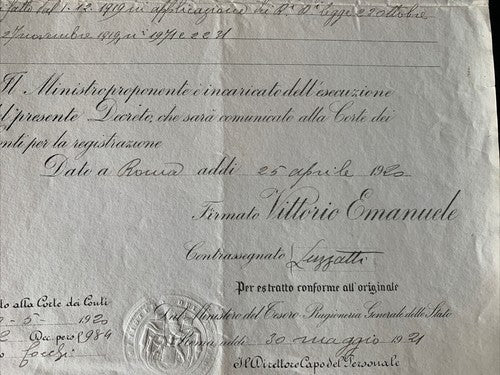 fatto dal 1-12-1919 in applicazione dei R.i D.i legge 2 ottobre
27 novembre 1919, n.i 1971 e 2231
Il Ministro proponente è incaricato dell'esecuzione
l presente Decreto, che sarà comunicato alla Corte dei
nti per la registrazione
Dato a Roma addì 25 aprile 1920
Firmato Vittorio Emanuele
Contrassegnato Luzzatti
Per estratto conforme all'originale
to alla Corte dei Conti
Dal Ministero del Tesoro - Ragioneria Generale dello Stato
-5- 1920
Dec pers 984
Roma, addì 30 maggio 1921
Il Direttore Capo del Personale